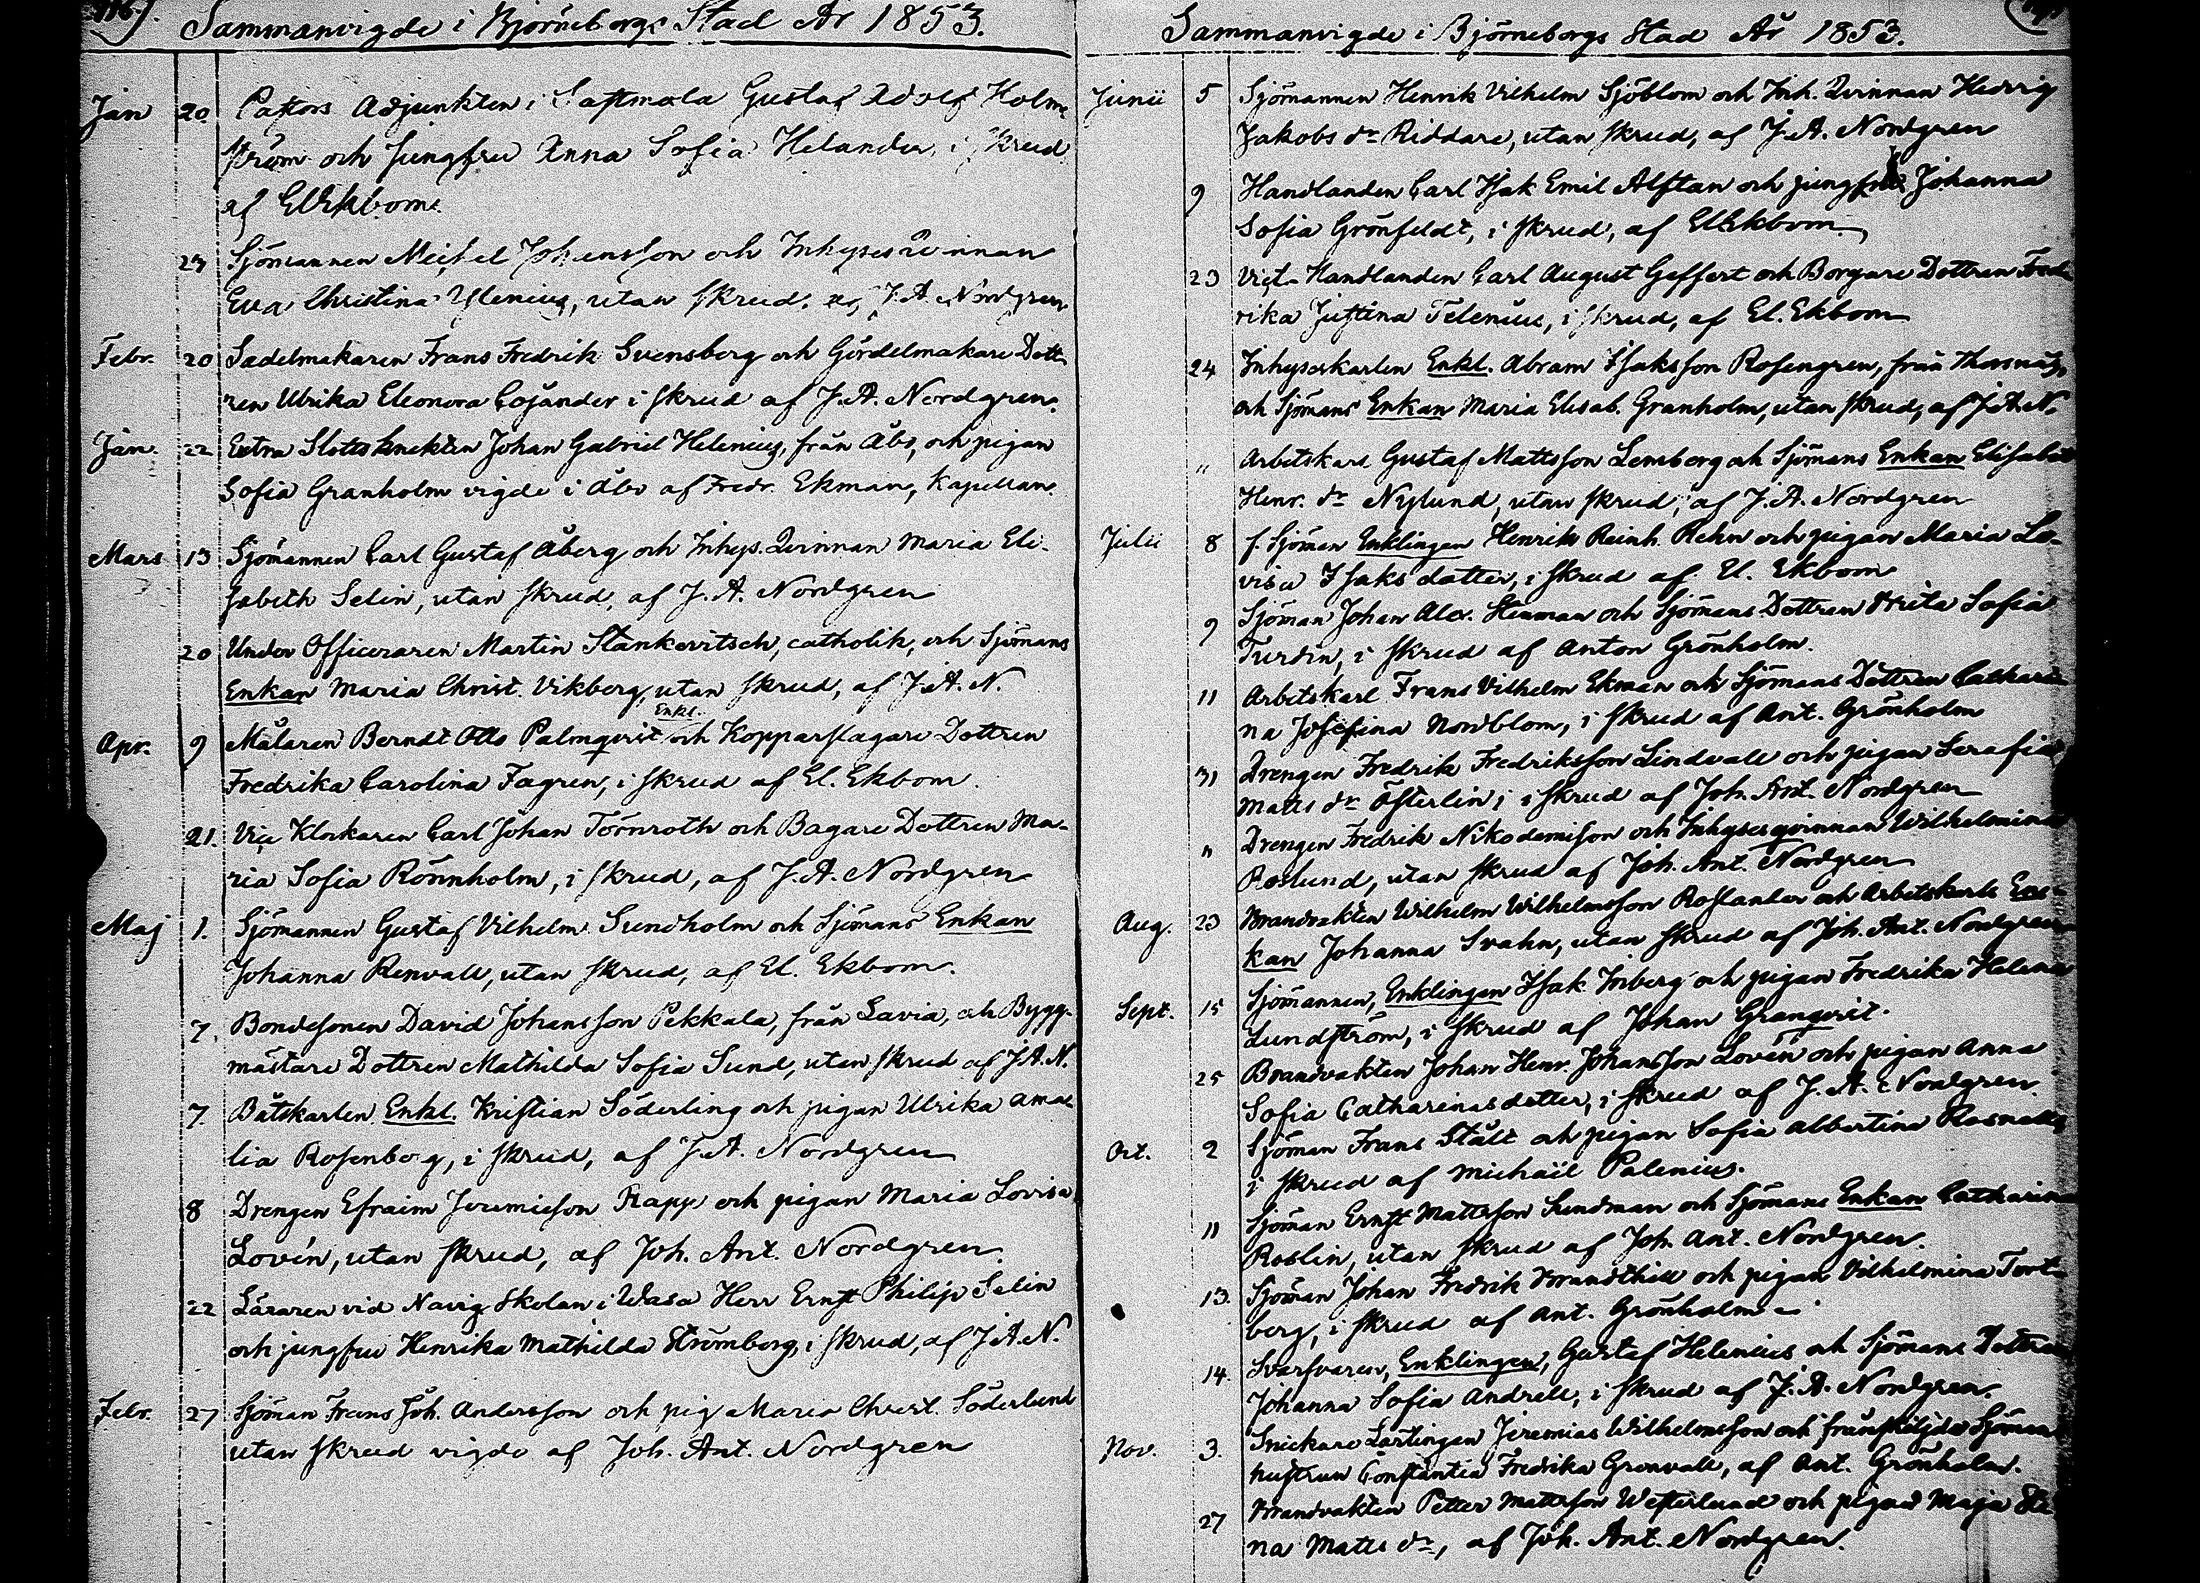 116).
Sammanvigde i Björneborgs Stad År 1853.
Jan 20. Pastors Adjunkten i Sastmola Gustaf Adolf Holm-
ström och Jungfru Anna Sofia Helander, i skrud
af El Ekbom.
23 Sjömannen Michel Johansson och Inhyses Qvinnan
Eva Christina Ylenius, utan skrud, af J. A. Nordgren
Febr. 20 Sadelmakaren Frans Fredrik Svensberg och Gördelmakare Dott-
ren Ulrika Eleonora Cojander i skrud af J. A. Nordgren.
Jan. 22 Extra Slottsknekten Johan Gabriel Helenius, från Åbo, och pigan
Sofia Granholm vigde i Åbo af Fredr. Ekman, Kapellan.
Mars 13 Sjömannen Carl Gustaf Åberg och Inhys. Qvinnan Maria Eli-
sabeth Selin, utan skrud, af J. A. Nordgren
20 Under Officeraren Martin Stankevitsch, catholik, och Sjömans
Enkan Maria Christ. Vikberg, utan skrud, af J. A. N.
Enkl.
Apr. 9 Målaren Berndt Otto Palmqvist och Kopparslagare Dottren
Fredrika Carolina Fagren, i skrud af El. Ekbom.
21. Vice Klockaren Carl Johan Törnroth och Bagare Dottren Ma-
ria Sofia Rönnholm, i skrud, af J. A. Nordgren
Maj 1. Sjömannen Gustaf Vilhelm Sundholm och Sjömans Enkan
Johanna Renvall, utan skrud, af El. Ekbom.
7. Bondesonen David Johansson Pekkala, från Lavia, och Bygg-
mästare Dottren Mathilda Sofia Sund, utan skrud af J. A. N.
7. Båtskarlen Enkl. Kristian Söderling och pigan Ulrika Ama-
lia Rosenberg, i skrud, af J. A. Nordgren
8 Drengen Efraim Jeremiesson Rapp och pigan Maria Lovisa
Lovén, utan skrud, af Joh. Ant. Nordgren
22 Läraren vid Navig. Skolan i Wasa Herr Ernst Philip Selin
och jungfru Henrika Mathilda Strömborg, i skrud, af J. A. N.
Febr. 27 Sjöman Frans Joh. Andersson och pig. Maria Christ. Söderlund
utan skrud vigde af Joh. Ant. Nordgren
Sammanvigde i Björneborgs Stad År 1853.
Junii 5 Sjömannen Henrik Vilhelm Sjöblom och Inh. Qvinnan Hedvig
Jakobs dr Riddare, utan skrud, af J. A. Nordgren
9 Handlanden Carl Isak Emil Alftan och jungfru Johanna
Sofia Grönfeldt, i skrud, af El Ekbom
23 Vict. Handlanden Carl August Geffert och Borgare Dottren Fred-
rika Justina Telenius, i skrud, af El. Ekbom
24 Inhyseskarlen Enkl. Abram Isaksson Rosengren, från
och Sjömans Enkan Maria Elisab. Granholm, utan skrud, af J. A. N.
" Arbetskarl Gustaf Mattsson Lemberg och Sjömans Enkan Elisabet
Henr. dr Nylund, utan skrud, af J. A. Nordgren
Julii 8 f. Sjöman Enklingen Henrik Reinh. Rehn och pigan Maria Lo-
visa Isaksdatter, i skrud af El. Ekbom
9 Sjöman Johan Alex. Stenman och Sjömans Dottren Brita Sofia
Turdin, i skrud af Anton Grönholm.
11 Arbetskarl Frans Vilhelm Ekman och Sjömans Dottren Cathari-
na Josefina Nordblom, i skrud af Ant. Grönholm
31 Drengen Fredrik Fredriksson Lindvall och pigan Serafia
Matts dr Österlin, i skrud af Joh. Ant. Nordgren
" Drengen Fredrik Nikodemisson och Inhysesqvinnan Wilhelmina
Roslund, utan skrud af Joh. Ant. Nordgren
Aug. 23 Brandvakten Wilhelm Wilhelmsson Roslander och Arbetskarls En-
kan Johanna Svahn, utan skrud af Joh. Ant. Nordgren
Sept. 15 Sjömannen, Enklingen Isak Friberg och pigan Fredrika Helena
Lundström, i skrud af Johan Granqvist.
25 Brandvakten Johan Henr. Johansson Lovén och pigan Anna
Sofia Catharinasdotter, i skrud af J. A. Nordgren
Oct. 2 Sjöman Frans Stålt och pigan Sofia Albertina Rosnell,
i skrud af Michaël Palenius.
11 Sjöman Ernst Mattsson Sundman och Sjömans Enkan Catharina
Roslin, utan skrud af Joh. Ant. Nordgren.
13. Sjöman Johan Fredrik Brandthill och pigan Vilhelmina Tort-
berg, i skrud af Ant. Grönholm
14. Svarfvaren, Enklingen, Gustaf Helenius och Sjömans Dottren
Johanna Sofia Andrell, i skrud af J. A. Nordgren.
Nov. 3. Snickare Lärlingen Jeremias Wilhelmsson och frånskiljda Sjömans
hustrun Constantia Fredrika Grönvall, af Ant. Grönholm.
27 Brandvakten Petter Mattsson Westerlund och pigan Maja Ste-
na Matts dr, af Joh. Ant. Nordgren.